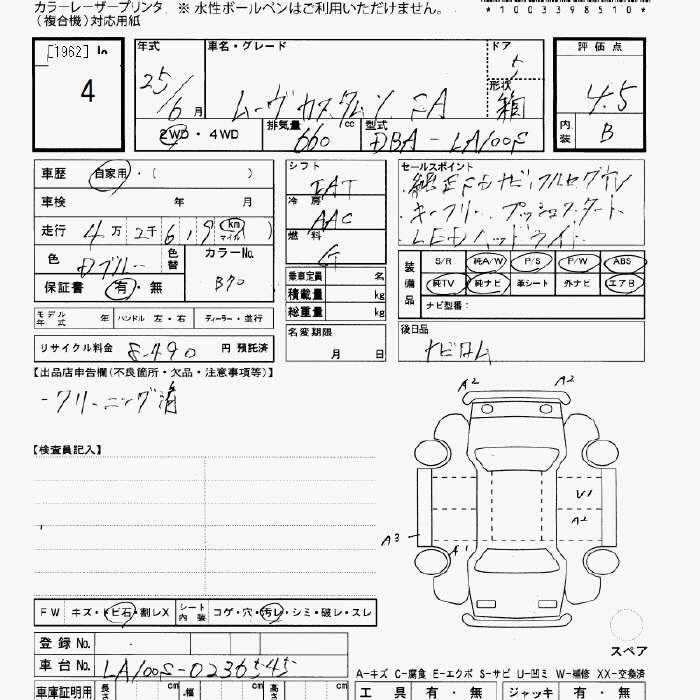 カラーレーザープリンタ ※ 水性ボールペンはご利用いただけません。
(複合機)対応用紙
*1003398510*
[1962] ln
4
年式 車名・グレード ドア 5
25/6月 ムーヴ カスタム SA 形状 箱
2WD・4WD 排気量 660 cc 型式 DBA-LA100S
評価点
4.5
内装 B
車歴 自家用・( )
車検 年 月
走行 4万2千6,9 km マイル )
色 Dブルー 色替 カラーNo. B70
保証書 有・無
シフト IAT
冷房 AAC
燃料 G
乗車定員 名
積載量 kg
総重量 kg
名変期限
月 日
セールスポイント
純正SDナビ、フルセグTV
キーフリー、プッシュスタート
LEDヘッドライト
装備品 S/R 純A/W P/S P/W ABS
純TV 純ナビ 革シート 外ナビ エアB
ナビ型番:
後日品
ナビロム
モデル年式 年 ハンドル 左・右 ディーラー・並行
リサイクル料金 8,490 円 預託済
【出品店申告欄(不良箇所・欠品・注意事項等)】
-クリーニング済
【検査員記入】
A2 A2
U1
A2
A3
A1
スペア
FW キズ・トビ石・割レX シート内装 コゲ・穴・汚レ・シミ・破レ・スレ
登録No.
車台No. LA100S-0236545
A-キズ C-腐食 E-エクボ S-サビ U-凹ミ W-補修 XX-交換済
車庫証明用 長さ cm 幅 cm 高さ cm
工具 有・無 ジャッキ 有・無